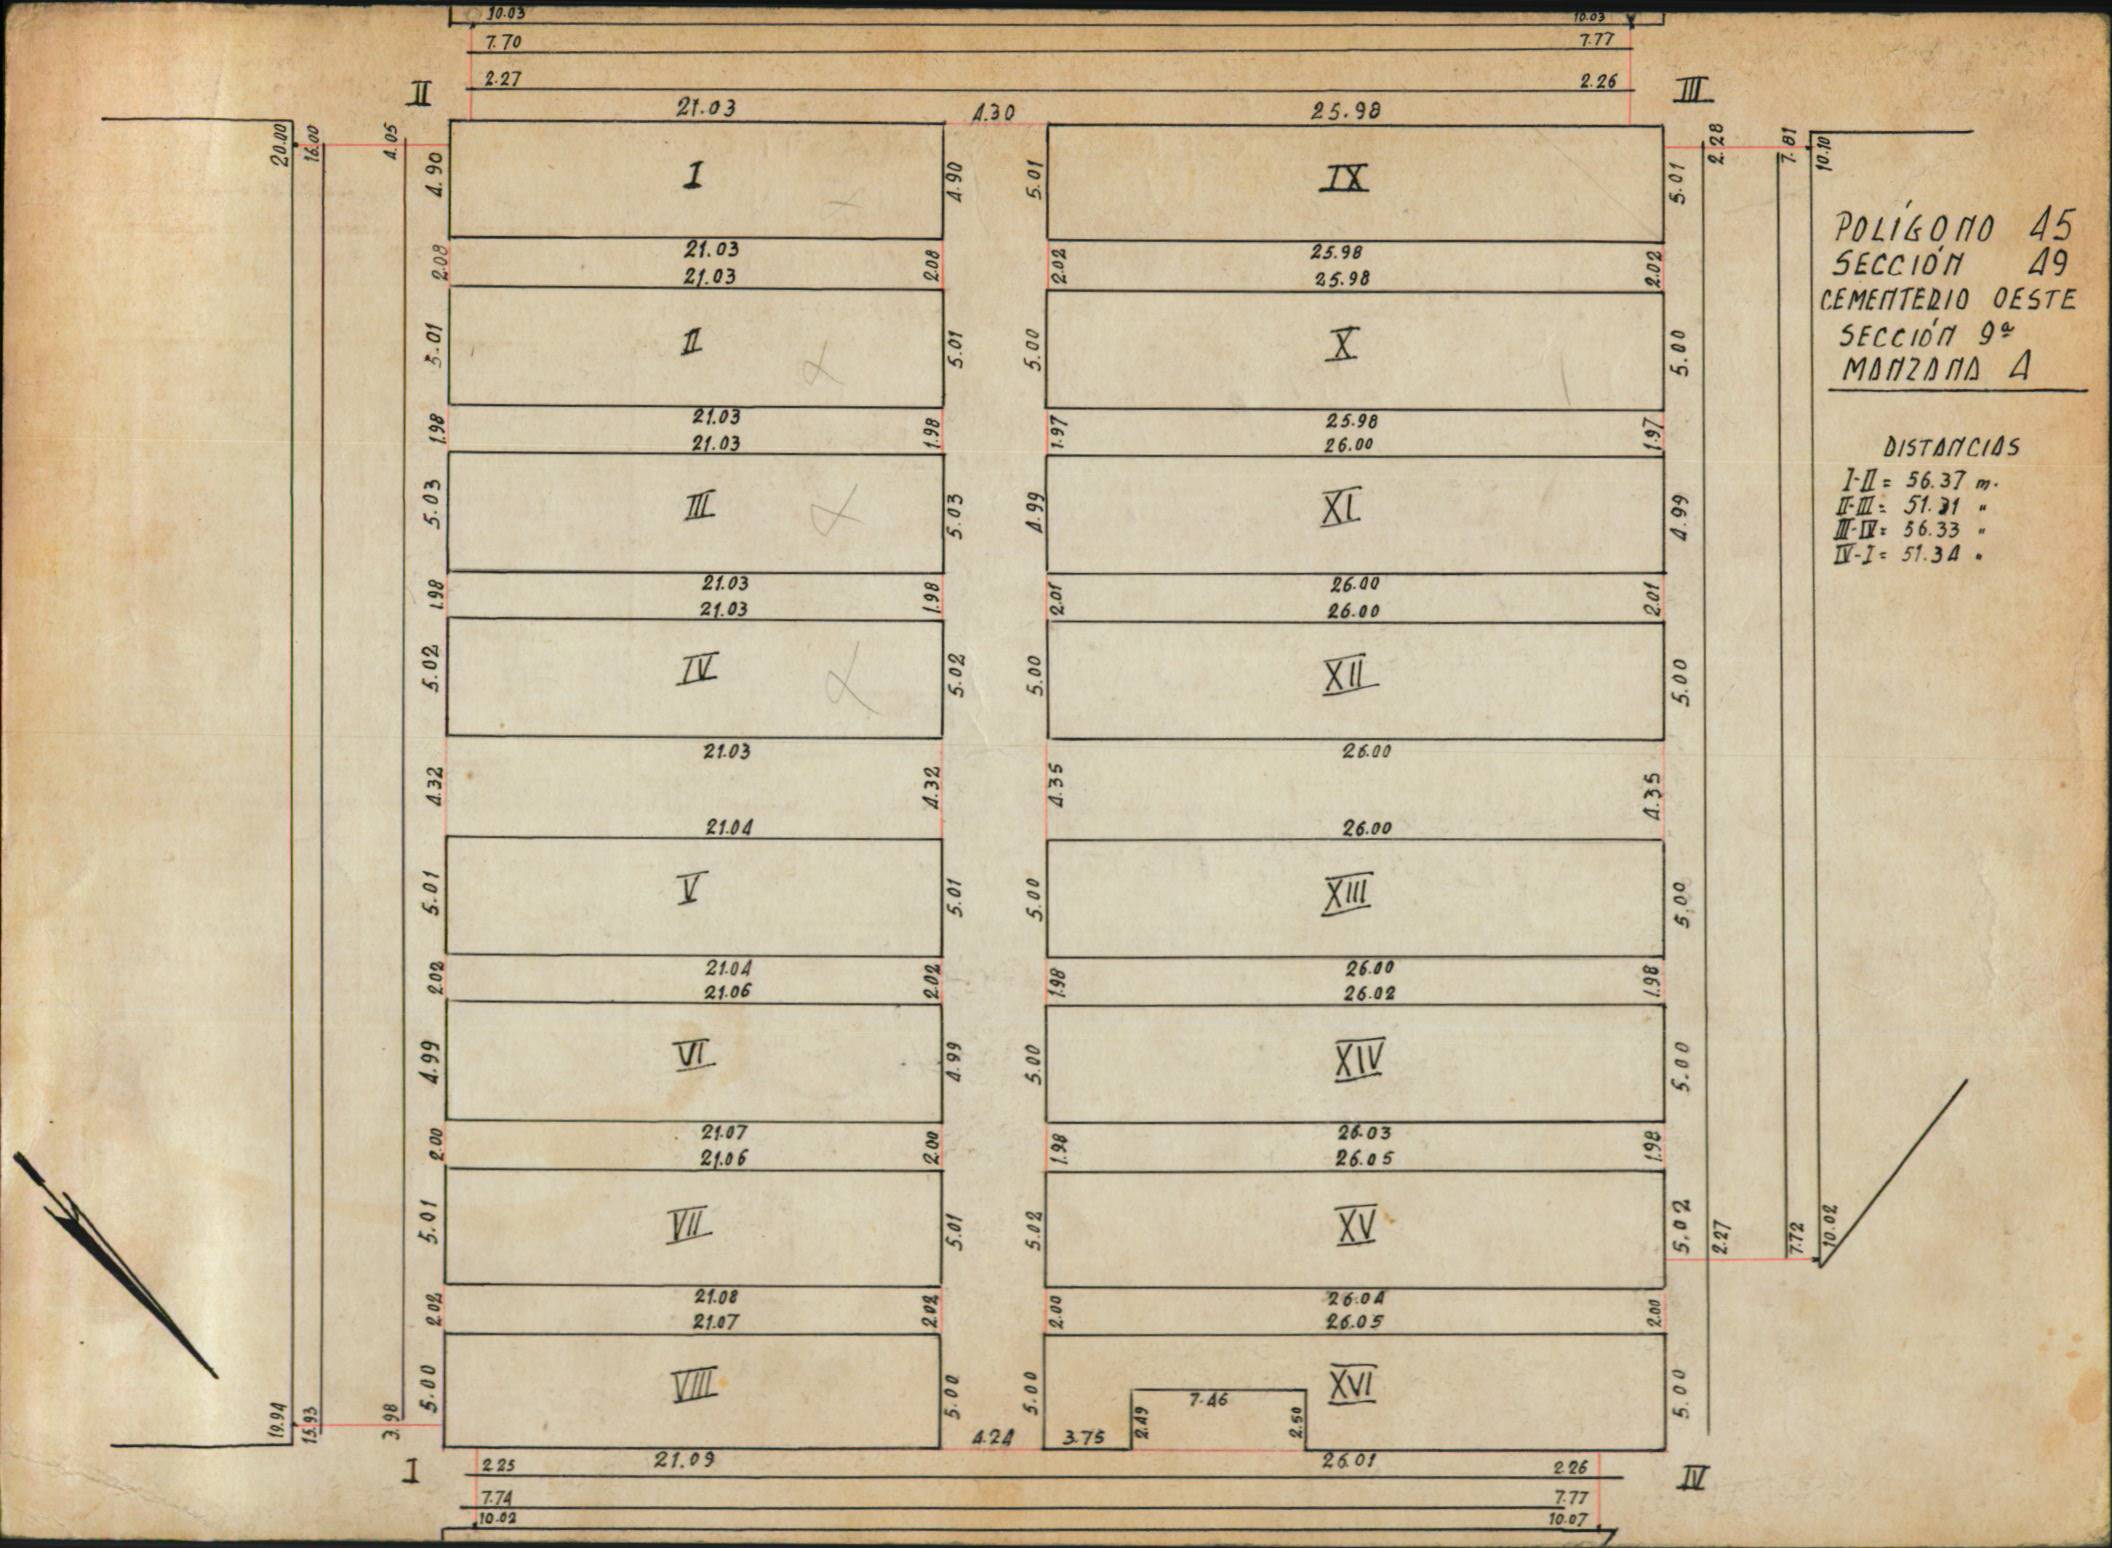 10.03 10.03
7.70 7.77
2.27 2.26
II 21.03 4.30 25.98 III
20.00 16.00 4.05 4.90 I 4.90 5.01 IX 5.01 2.28 7.81 10.10
2.08 21.03 2.08 2.02 25.98 2.02
21.03 25.98
5.01 II 5.01 5.00 X 5.00
1.98 21.03 1.98 1.97 25.98 1.97
21.03 26.00
5.03 III 5.03 4.99 XI 4.99
1.98 21.03 1.98 2.01 26.00 2.01
21.03 26.00
5.02 IV 5.02 5.00 XII 5.00
21.03 26.00
4.32 4.32 4.35 4.35
21.04 26.00
5.01 V 5.01 5.00 XIII 5.00
2.02 21.04 2.02 1.98 26.00 1.98
21.06 26.02
4.99 VI 4.99 5.00 XIV 5.00
2.00 21.07 2.00 1.98 26.03 1.98
21.06 26.05
5.01 VII 5.01 5.02 XV 5.02 2.27 7.72 10.02
2.02 21.08 2.02 2.00 26.04 2.00
21.07 26.05
19.94 15.93 3.98 5.00 VIII 5.00 5.00 XVI 5.00
7.46
2.49 2.50
4.24 3.75
I 21.09 26.01 IV
2.25 2.26
7.74 7.77
10.02 10.07
POLÍGONO 45
SECCIÓN 49
CEMENTERIO OESTE
SECCIÓN 9ª
MANZANA A
DISTANCIAS
I-II = 56.37 m.
II-III = 51.31 "
III-IV = 56.33 "
IV-I = 51.34 "